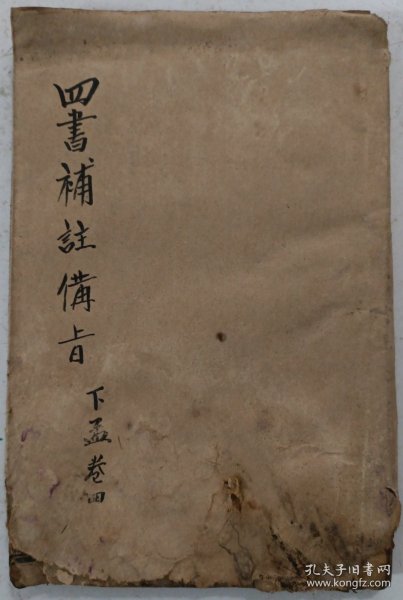 四書補註備旨
下孟卷四
孔夫子旧书网
www.kongfz.com